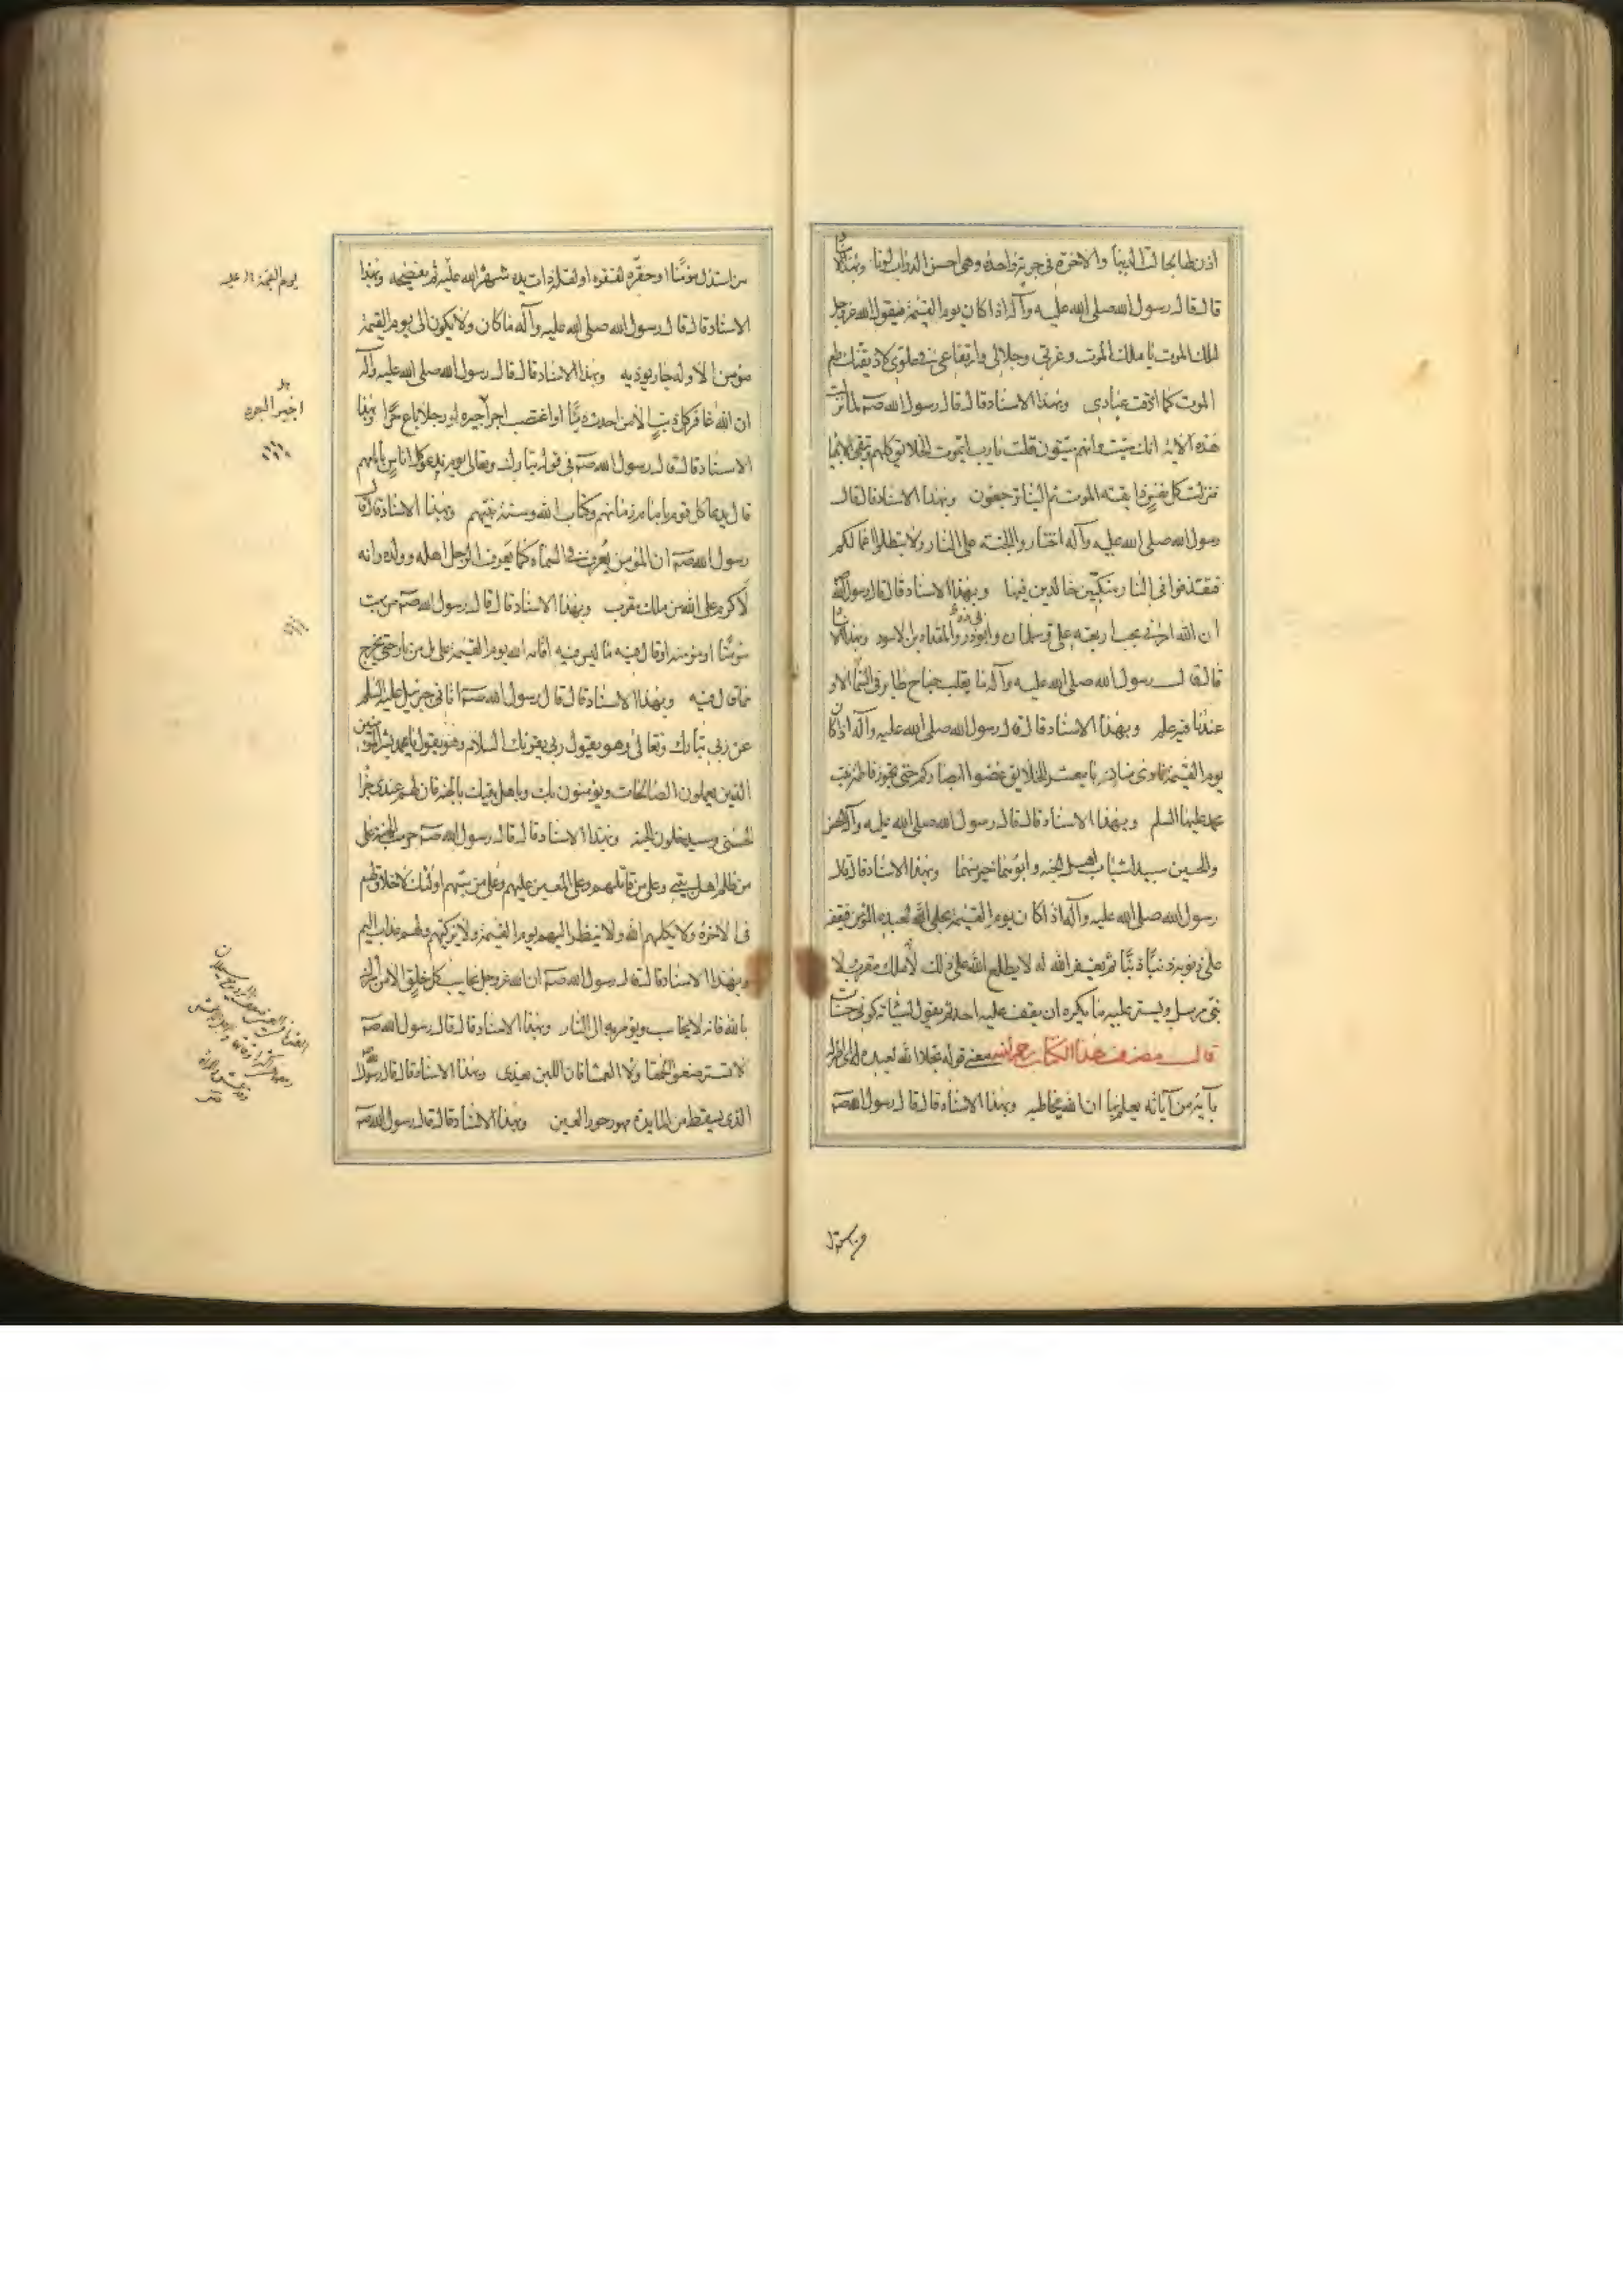 اذن لها بحالت الدنيا والاخرة فى جرية واحدة وهى احسن الدواب لونا وبهذا الاسناد
قال قال رسول الله صلى الله عليه وآله اذا كان يوم القيمة فيقول الله عزوجل
لملك الموت يا ملك الموت وعزتى وجلالى وارتفاعى فى علوى لاذيقنك طعم
الموت كما اذقت عبادى وبهذا الاسناد قال قال رسول الله صه لما نزلت
هذه الاية انك ميت وانهم ميتون قلت يا رب ايموت الخلايق كلهم وتبقى الانبيا
فنزلت كل نفس ذايقة الموت ثم الينا ترجعون وبهذا الاسناد قال قال
رسول الله صلى الله عليه وآله اختاروا الجنة على النار ولا تبطلوا اعمالكم
فتقذفوا فى النار منكبين خالدين فيها وبهذا الاسناد قال قال رسول الله
ان الله امرنى بحب اربعة على وسلمان وابوذر والمقداد بن الاسود وبهذا الاسناد
قال قال رسول الله صلى الله عليه وآله ما يقلب جناح طاير فى السماء الا و
عندنا فيه علم وبهذا الاسناد قال قال رسول الله صلى الله عليه وآله اذا كان
يوم القيمة نادى مناد يا معشر الخلايق غضوا ابصاركم حتى تجوز فاطمة بنت
محمد عليها السلم وبهذا الاسناد قال قال رسول الله صلى الله عليه وآله الحسن
والحسين سيدا شباب اهل الجنة وابوهما خير منهما وبهذا الاسناد قال قال
رسول الله صلى الله عليه وآله اذا كان يوم القيمة تجلى الله لعبده المؤمن فيقفه
على ذنوبه ذنبا ذنبا ثم يغفر الله له لا يطلع الله على ذلك لا ملك مقرب ولا
نبى مرسل ويستر عليه ما يكره ان يقف عليه احد ثم يقول لسيئاته كونى حسنات
قال مصنف هذا الكتاب رحمه الله معنى قوله تجلى الله لعبده اى ظهر له
بآية من آياته يعلم بها ان الله يخاطبه وبهذا الاسناد قال قال رسول الله صه
من استذل
من استذل مؤمنا او حقره لفقره او لقلة ذات يده شهره الله عليه ثم يفضحه وبهذا
الاسناد قال قال رسول الله صلى الله عليه وآله ما كان ولا يكون الى يوم القيمة
مؤمن الا وله جار يوذيه وبهذا الاسناد قال قال رسول الله صلى الله عليه وآله
ان الله غافر كل ذنب الا من احدث دينا او اغتصب اجرا اجيره او رجلا باع حرا وبهذا
الاسناد قال قال رسول الله صه فى قوله تبارك وتعالى يوم ندعو كل اناس بامامهم
قال يدعا كل قوم بامام زمانهم وكتاب الله وسنة نبيهم وبهذا الاسناد قال قال
رسول الله صه ان المؤمن يُعرف فى السماء كما يَعرف الرجل اهله وولده وانه
لاكرم على الله من ملك مقرب وبهذا الاسناد قال قال رسول الله صه من بهت
مؤمنا او مؤمنة او قال فيه ما ليس فيه اقامه الله يوم القيمة على تل من نار حتى يخرج
مما قال فيه وبهذا الاسناد قال قال رسول الله صه اتانى جبرئيل عليه السلم
عن ربى تبارك وتعالى وهو يقول ربى يقرئك السلام وهو يقول يا محمد بشر المؤمنين
الذين يعملون الصالحات ويؤمنون بك وباهل بيتك بالجنة فان لهم عندى جزا
الحسنى وسيدخلون الجنة وبهذا الاسناد قال قال رسول الله صه حرمت الجنة على
من ظلم اهل بيتى وعلى من قاتلهم وعلى المعين عليهم وعلى من سبهم اولئك لا خلاق لهم
فى الاخرة ولا يكلمهم الله ولا ينظر اليهم يوم القيمة ولا يزكيهم ولهم عذاب اليم
وبهذا الاسناد قال قال رسول الله صه ان الله عزوجل يحاسب كل خلق الا من اشرك
بالله فانه لا يحاسب ويؤمر به الى النار وبهذا الاسناد قال قال رسول الله صه
لا تسترضعوا الحمقا ولا العمشا فان اللبن يعدى وبهذا الاسناد قال قال رسول الله
الذى يسقط من المايدة مهور حور العين وبهذا الاسناد قال قال رسول الله صه
يوم القيمة
اجير